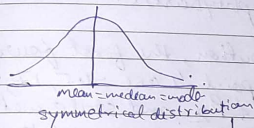 mean=median=mode
symmetrical distribution